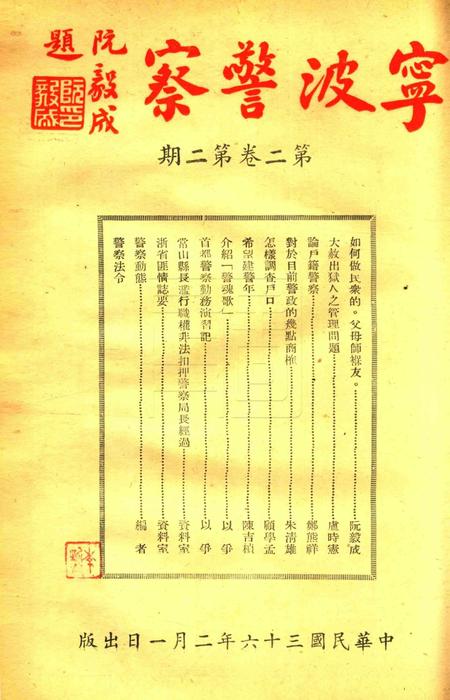 寧波警察
阮毅成
題
阮毅成印
第二卷第二期
如何做民衆的。父母師保友。 阮毅成
大赦出獄人之管理問題 盧時憲
論戶籍警察 鄭熊祥
對於目前警政的幾點商榷 朱清雄
怎樣調查戶口 顧學孟
希望建警年 陳吉楨
介紹「警魂歌」 以爭
首都警察勤務演習記 以爭
常山縣長濫行職權非法扣押警察局長經過 資料室
浙省匪情誌要 資料室
警察動態 編者
警察法令
中華民國三十六年二月一日出版